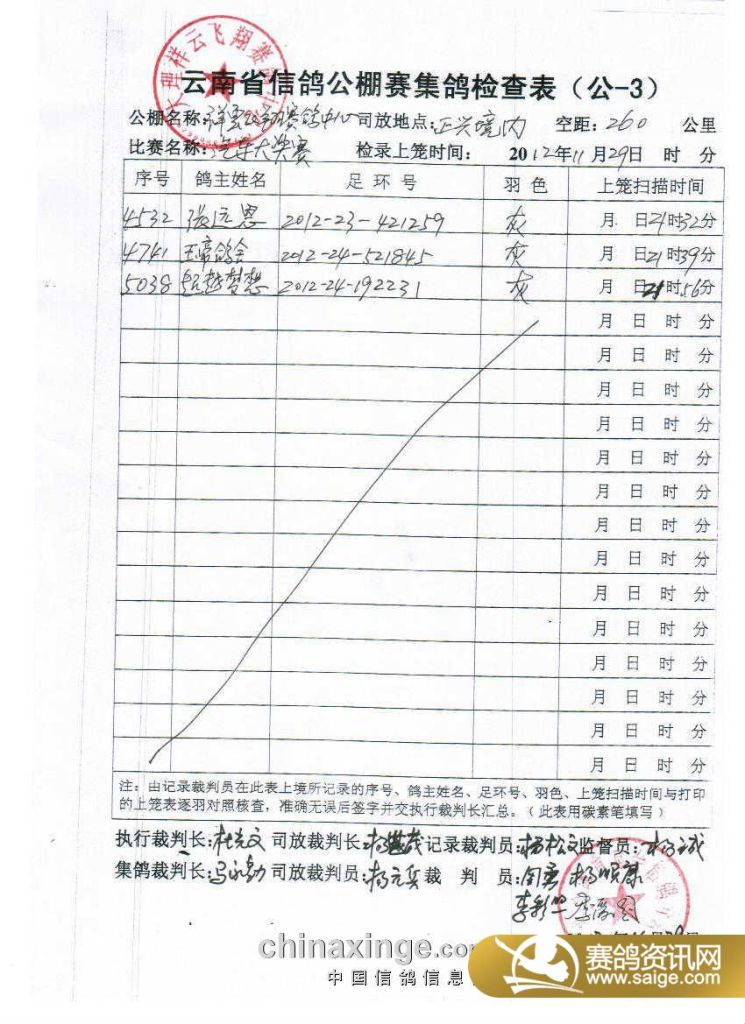 大理祥云飞翔赛鸽中心
云南省信鸽公棚赛集鸽检查表（公-3）
公棚名称: 祥云飞翔赛鸽中心 司放地点: 正兴境内 空距: 260 公里
比赛名称: 汽车大决赛 检录上笼时间: 2012年11月29日 时 分
序号 鸽主姓名 足环号 羽色 上笼扫描时间
4532 张远恩 2012-23-421259 灰 月 日21时32分
4741 王帝鸽舍 2012-24-521845 灰 月 日21时39分
5038 超越梦想 2012-24-192231 灰 月 日21时56分
月 日 时 分
月 日 时 分
月 日 时 分
月 日 时 分
月 日 时 分
月 日 时 分
月 日 时 分
月 日 时 分
月 日 时 分
月 日 时 分
月 日 时 分
月 日 时 分
月 日 时 分
月 日 时 分
注: 由记录裁判员在此表上境所记录的序号、鸽主姓名、足环号、羽色、上笼扫描时间与打印
的上笼表逐羽对照核查，准确无误后签字并交执行裁判长汇总。（此表用碳素笔填写）
执行裁判长: 杜克文 司放裁判长: 记录裁判员: 杨松文 监督员:
集鸽裁判长: 马永勤 司放裁判员: 杨元兵 裁 判 员: 杨顺康
chinaxinge.co
中国信鸽信息
赛鸽资讯网
www.saige.com